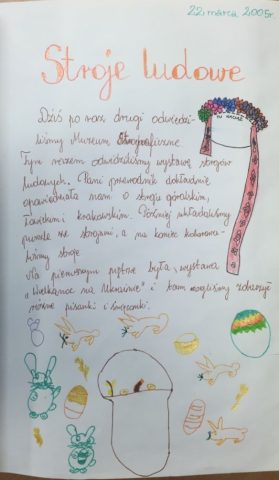 22 marca 2005r
Stroje ludowe
Dziś po raz drugi odwiedzi-
liśmy Muzeum Etnograficzne.
Tym razem odwiedziliśmy wystawę strojów
ludowych. Pani przewodnik dokładnie
opowiadała nam o stroju góralskim,
łowickim i krakowskim. Później układaliśmy
puzzle ze strojami, a na koniec kolorowa-
liśmy stroje
Na pierwszym piętrze była wystawa
„Wielkanoc na Ukrainie" i tam mogliśmy zobaczyć
różne pisanki i święconki.